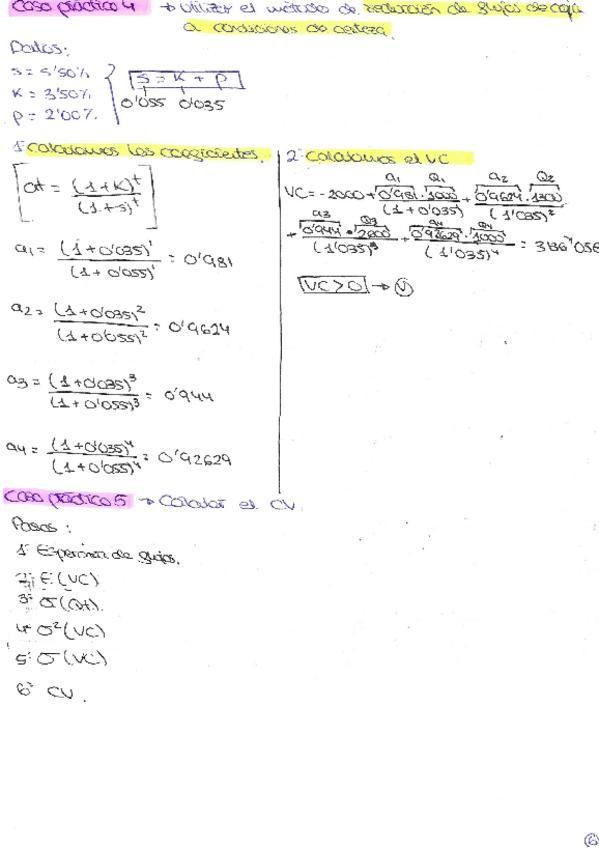 Caso práctico 4 → Utilizar el método de reducción de flujos de caja
a condiciones de certeza.
Datos:
S = 5'50%
K = 3'50%
P = 2'00%
S = K + P
0'055 0'035
1º Calculamos los coeficientes.
αt = (1+K)^t / (1+s)^t
a1 = (1+0'035)^1 / (1+0'055)^1 = 0'981
a2 = (1+0'035)^2 / (1+0'055)^2 = 0'9624
a3 = (1+0'035)^3 / (1+0'055)^3 = 0'944
a4 = (1+0'035)^4 / (1+0'055)^4 = 0'92629
2º Calculamos el VC
a1 Q1 a2 Q2
VC = -2000 + 0'981 · 1000 / (1+0'035) + 0'9624 · 1300 / (1'035)^2
a3 Q3 a4 Q4
+ 0'944 · 2000 / (1'035)^3 + 0'92629 · 1000 / (1'035)^4 = 3136'056
VC > 0 → V
Caso práctico 5 → Calcular el CV
Pasos:
1º Esperanza de flujos.
2º E(VC)
3º σ(Qt).
4º σ²(VC)
5º σ(VC)
6º CV.
6